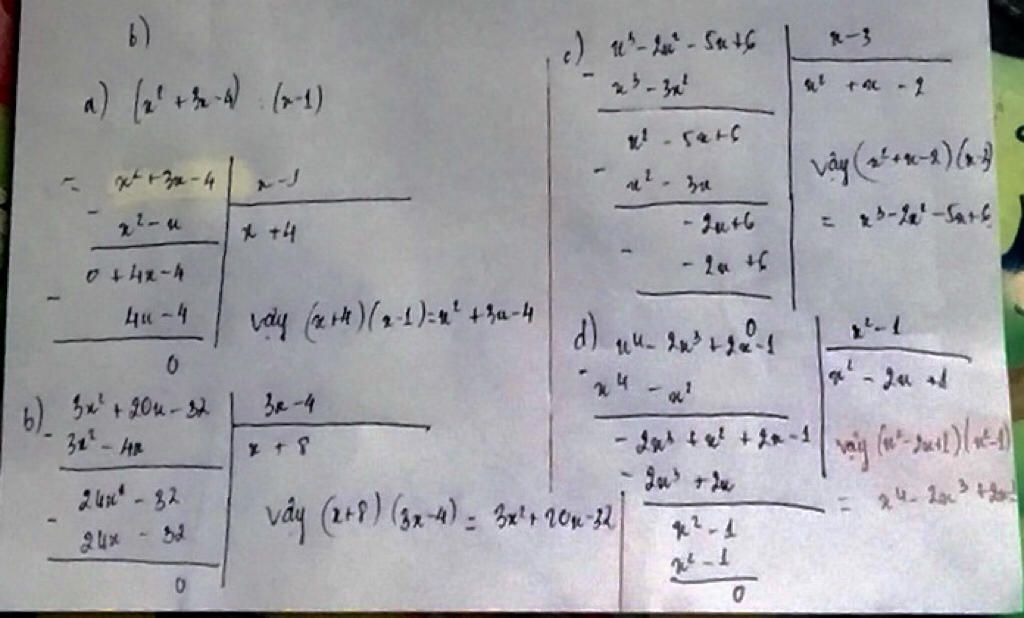 b)
a) (x² + 3x - 4) : (x - 1)
= x² + 3x - 4 | x - 1
- x² - x | x + 4
0 + 4x - 4
- 4x - 4
0
vậy (x+4)(x-1) = x² + 3x - 4
b) 3x² + 20x - 32 | 3x - 4
- 3x² - 4x | x + 8
24x - 32
- 24x - 32
0
vậy (x+8)(3x-4) = 3x² + 20x - 32
c) x³ - 2x² - 5x + 6 | x - 3
- x³ - 3x² | x² + x - 2
x² - 5x + 6
- x² - 3x
- 2x + 6
- - 2x + 6
0
vậy (x² + x - 2)(x - 3)
= x³ - 2x² - 5x + 6
d) x⁴ - 2x³ + 2x - 1 | x² - 1
- x⁴ - x² | x² - 2x + 1
- 2x³ + x² + 2x - 1
- 2x³ + 2x
x² - 1
x² - 1
0
vậy (x² - 2x + 1)(x² - 1)
= x⁴ - 2x³ + 2x